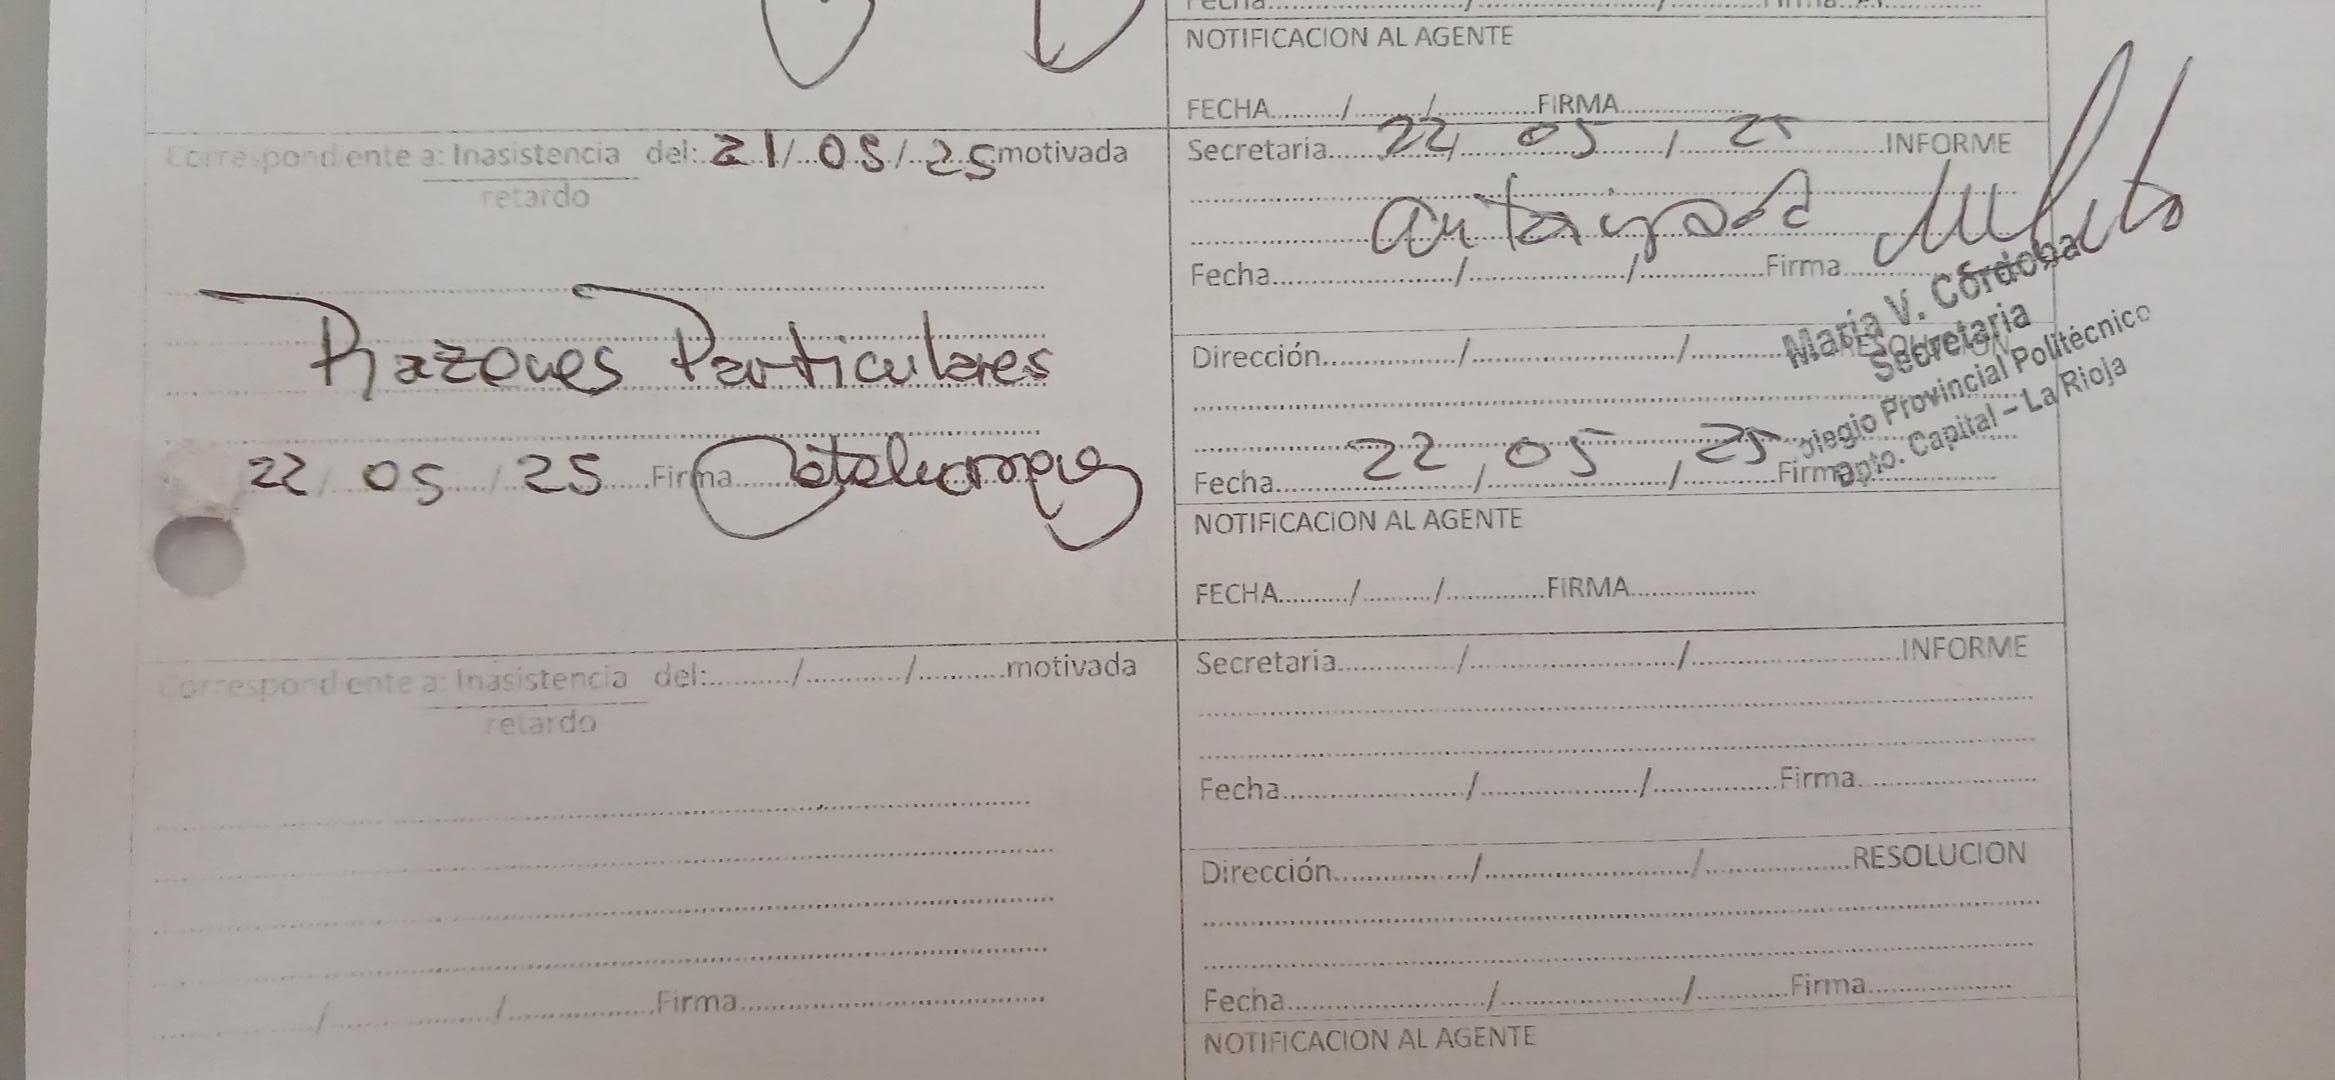 NOTIFICACION AL AGENTE
FECHA........../........../..............FIRMA..................
Correspondiente a: Inasistencia del: 21/05/25 motivada
retardo
Razones Particulares
22/05/25 Firma
Secretaria 22/05/25 INFORME
Fecha......................./......................./...............Firma
María V. Córdoba
Secretaria
Colegio Provincial Politécnico
Dpto. Capital – La Rioja
Dirección................./........................../
Fecha 22/05/25 Firma
NOTIFICACION AL AGENTE
FECHA........../........../..............FIRMA..................
Correspondiente a: Inasistencia del:........../............/...........motivada
retardo
/..................../..................Firma
Secretaria.............../........................../..........................INFORME
Fecha......................./..................../...............Firma
Dirección................./........................../..................RESOLUCION
Fecha........................./......................./............Firma
NOTIFICACION AL AGENTE